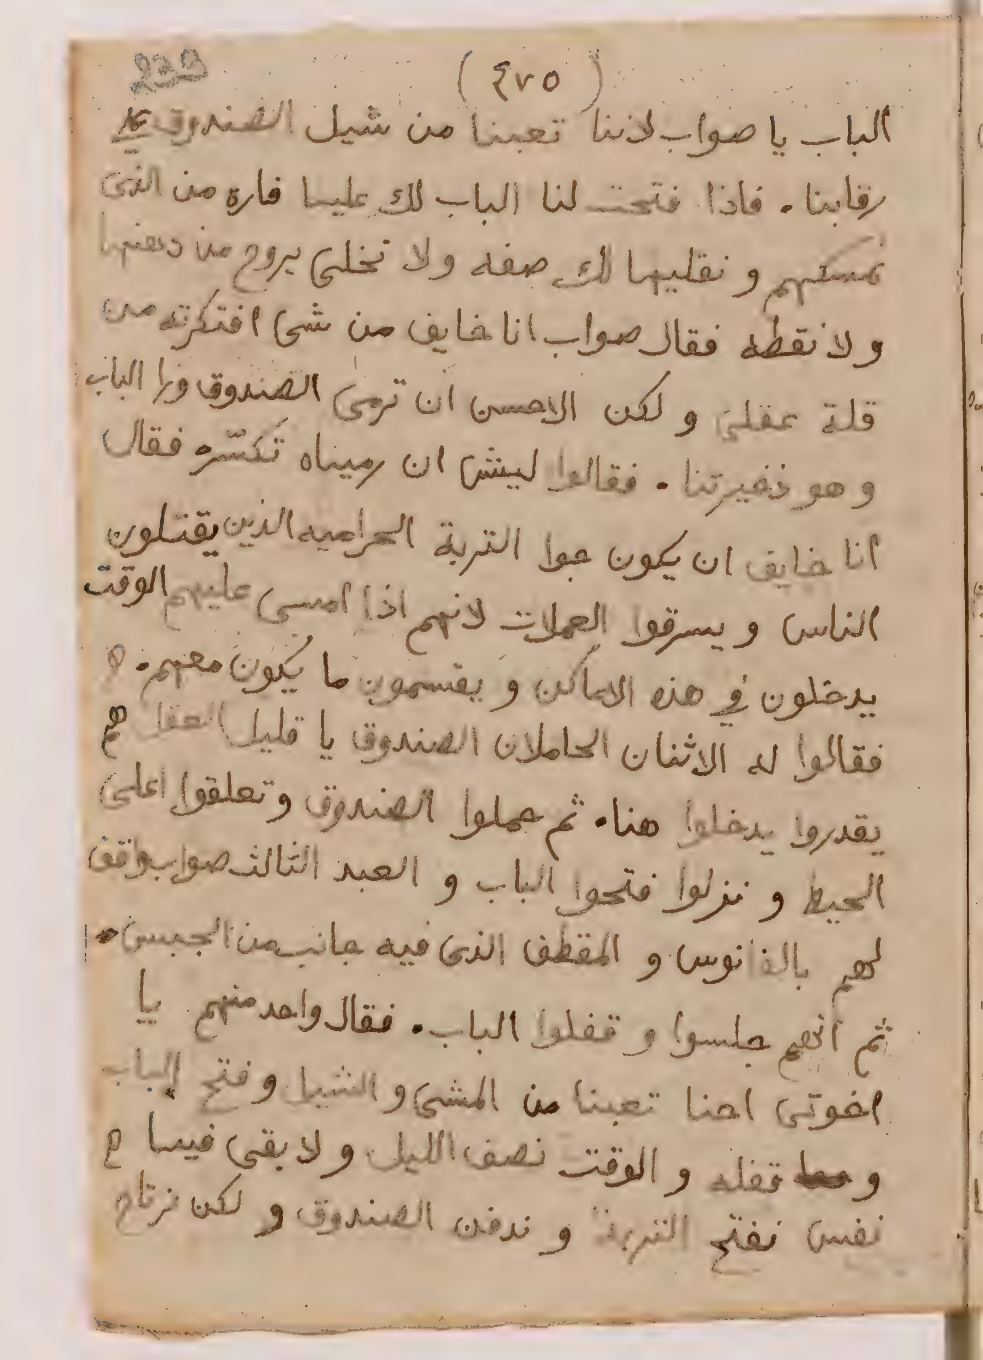 239
(٤٧٥)
الباب يا صواب لاننا تعبنا من شيل الصندوق على
رقابنا . فاذا فتحت لنا الباب لك علينا فاره من الذى
نمسكهم و نقليها لك صفه ولا نخلى يروح من دهنها
ولا نقطه فقال صواب انا خايف من شى افتكرته من
قلة عقلى و لكن الاحسن ان ترمى الصندوق ورا الباب
وهو ذخيرتنا . فقالوا ليش ان رميناه تكسّر فقال
انا خايف ان يكون جوا التربة الحراميه الذين يقتلون
الناس و يسرقوا العملات لانهم اذا امسى عليهم الوقت
يدخلون في هذه الاماكن و يقسمون ما يكون معهم .
فقالوا له الاثنان الحاملان الصندوق يا قليل العقل هم
يقدروا يدخلوا هنا . ثم حملوا الصندوق وتعلقوا اعلى
الحيط و نزلوا فتحوا الباب و العبد الثالث صواب واقف
لهم بالفانوس و المقطف الذى فيه جانب من الجبس .
ثم انهم جلسوا و قفلوا الباب . فقال واحد منهم يا
اخوتى احنا تعبنا من المشى و الشيل و فتح الباب
و قفله و الوقت نصف الليل ولا بقى فينا
نفس نفتح التربة و ندفن الصندوق و لكن نرتاح